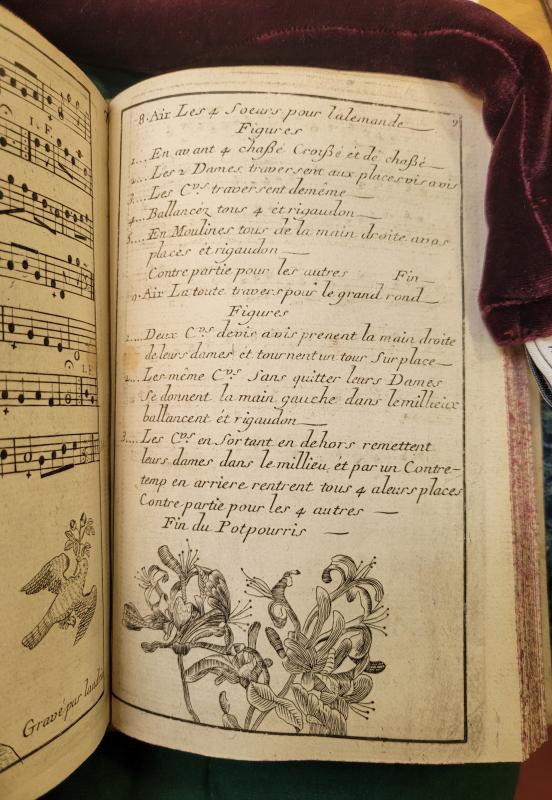 I. F.
I. F.
Gravé par
8. Air Les 4 Soeurs pour lalemande
9
Figures
1.... En avant 4 chaßé Croißé et de chaßé
2.... Les 2 Dames traversent aux places vis avis
3.... Les C.vrs traversent demême
4.... Ballancéz tous 4 ét rigaudon
5.... En Moulines tous de la main droite avos
places ét rigaudon
Contre partie pour les autres Fin
9. Air La toute travers pour le grand rond
Figures
1.... Deux C.vrs dévis avis prenent la main droite
de leurs dames et tournent un tous Sur place
2.... Les même C.vrs Sans quitter leurs Dames
Se donnent la main gauche dans le millieux
ballancent ét rigaudon
3.... Les C.vrs en Sortant en dehors remettent
leurs dames dans le millieu ét par un Contre-
temp en arriere rentrent tous 4 aleurs places
Contre partie pour les 4 autres
Fin du Potpourris